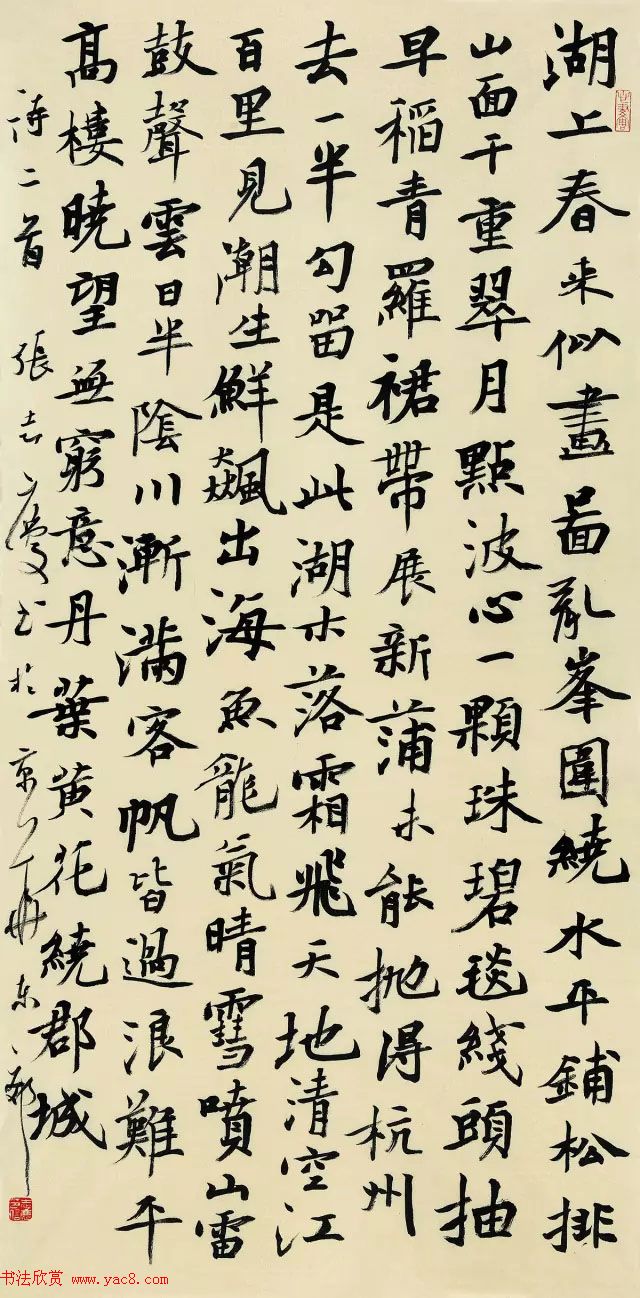 湖上春来似畫啚亂峯圍繞水平鋪松排
山面千重翠月點波心一顆珠碧毯綫頭抽
早稻青羅裙帶展新蒲未能抛得杭州
去一半勾留是此湖木落霜飛天地清空江
百里見潮生鮮飆出海魚龍氣晴雪噴山雷
鼓聲雲日半陰川漸滿客帆皆過浪難平
高樓曉望無窮意丹葉黄花繞郡城
诗二首 張志慶书於京華东郊
书法欣赏 www.yac8.com